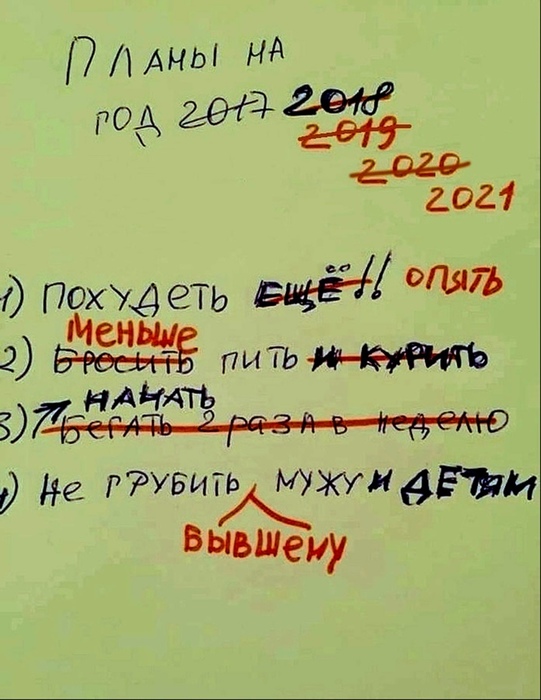 Планы на
год 2017 2018
2019
2020
2021
1) похудеть ЕЩЁ!! опять
меньше
2) бросить пить и курить
начать
3) бегать 2 раза в неделю
4) не грубить мужу и детям
бывшему